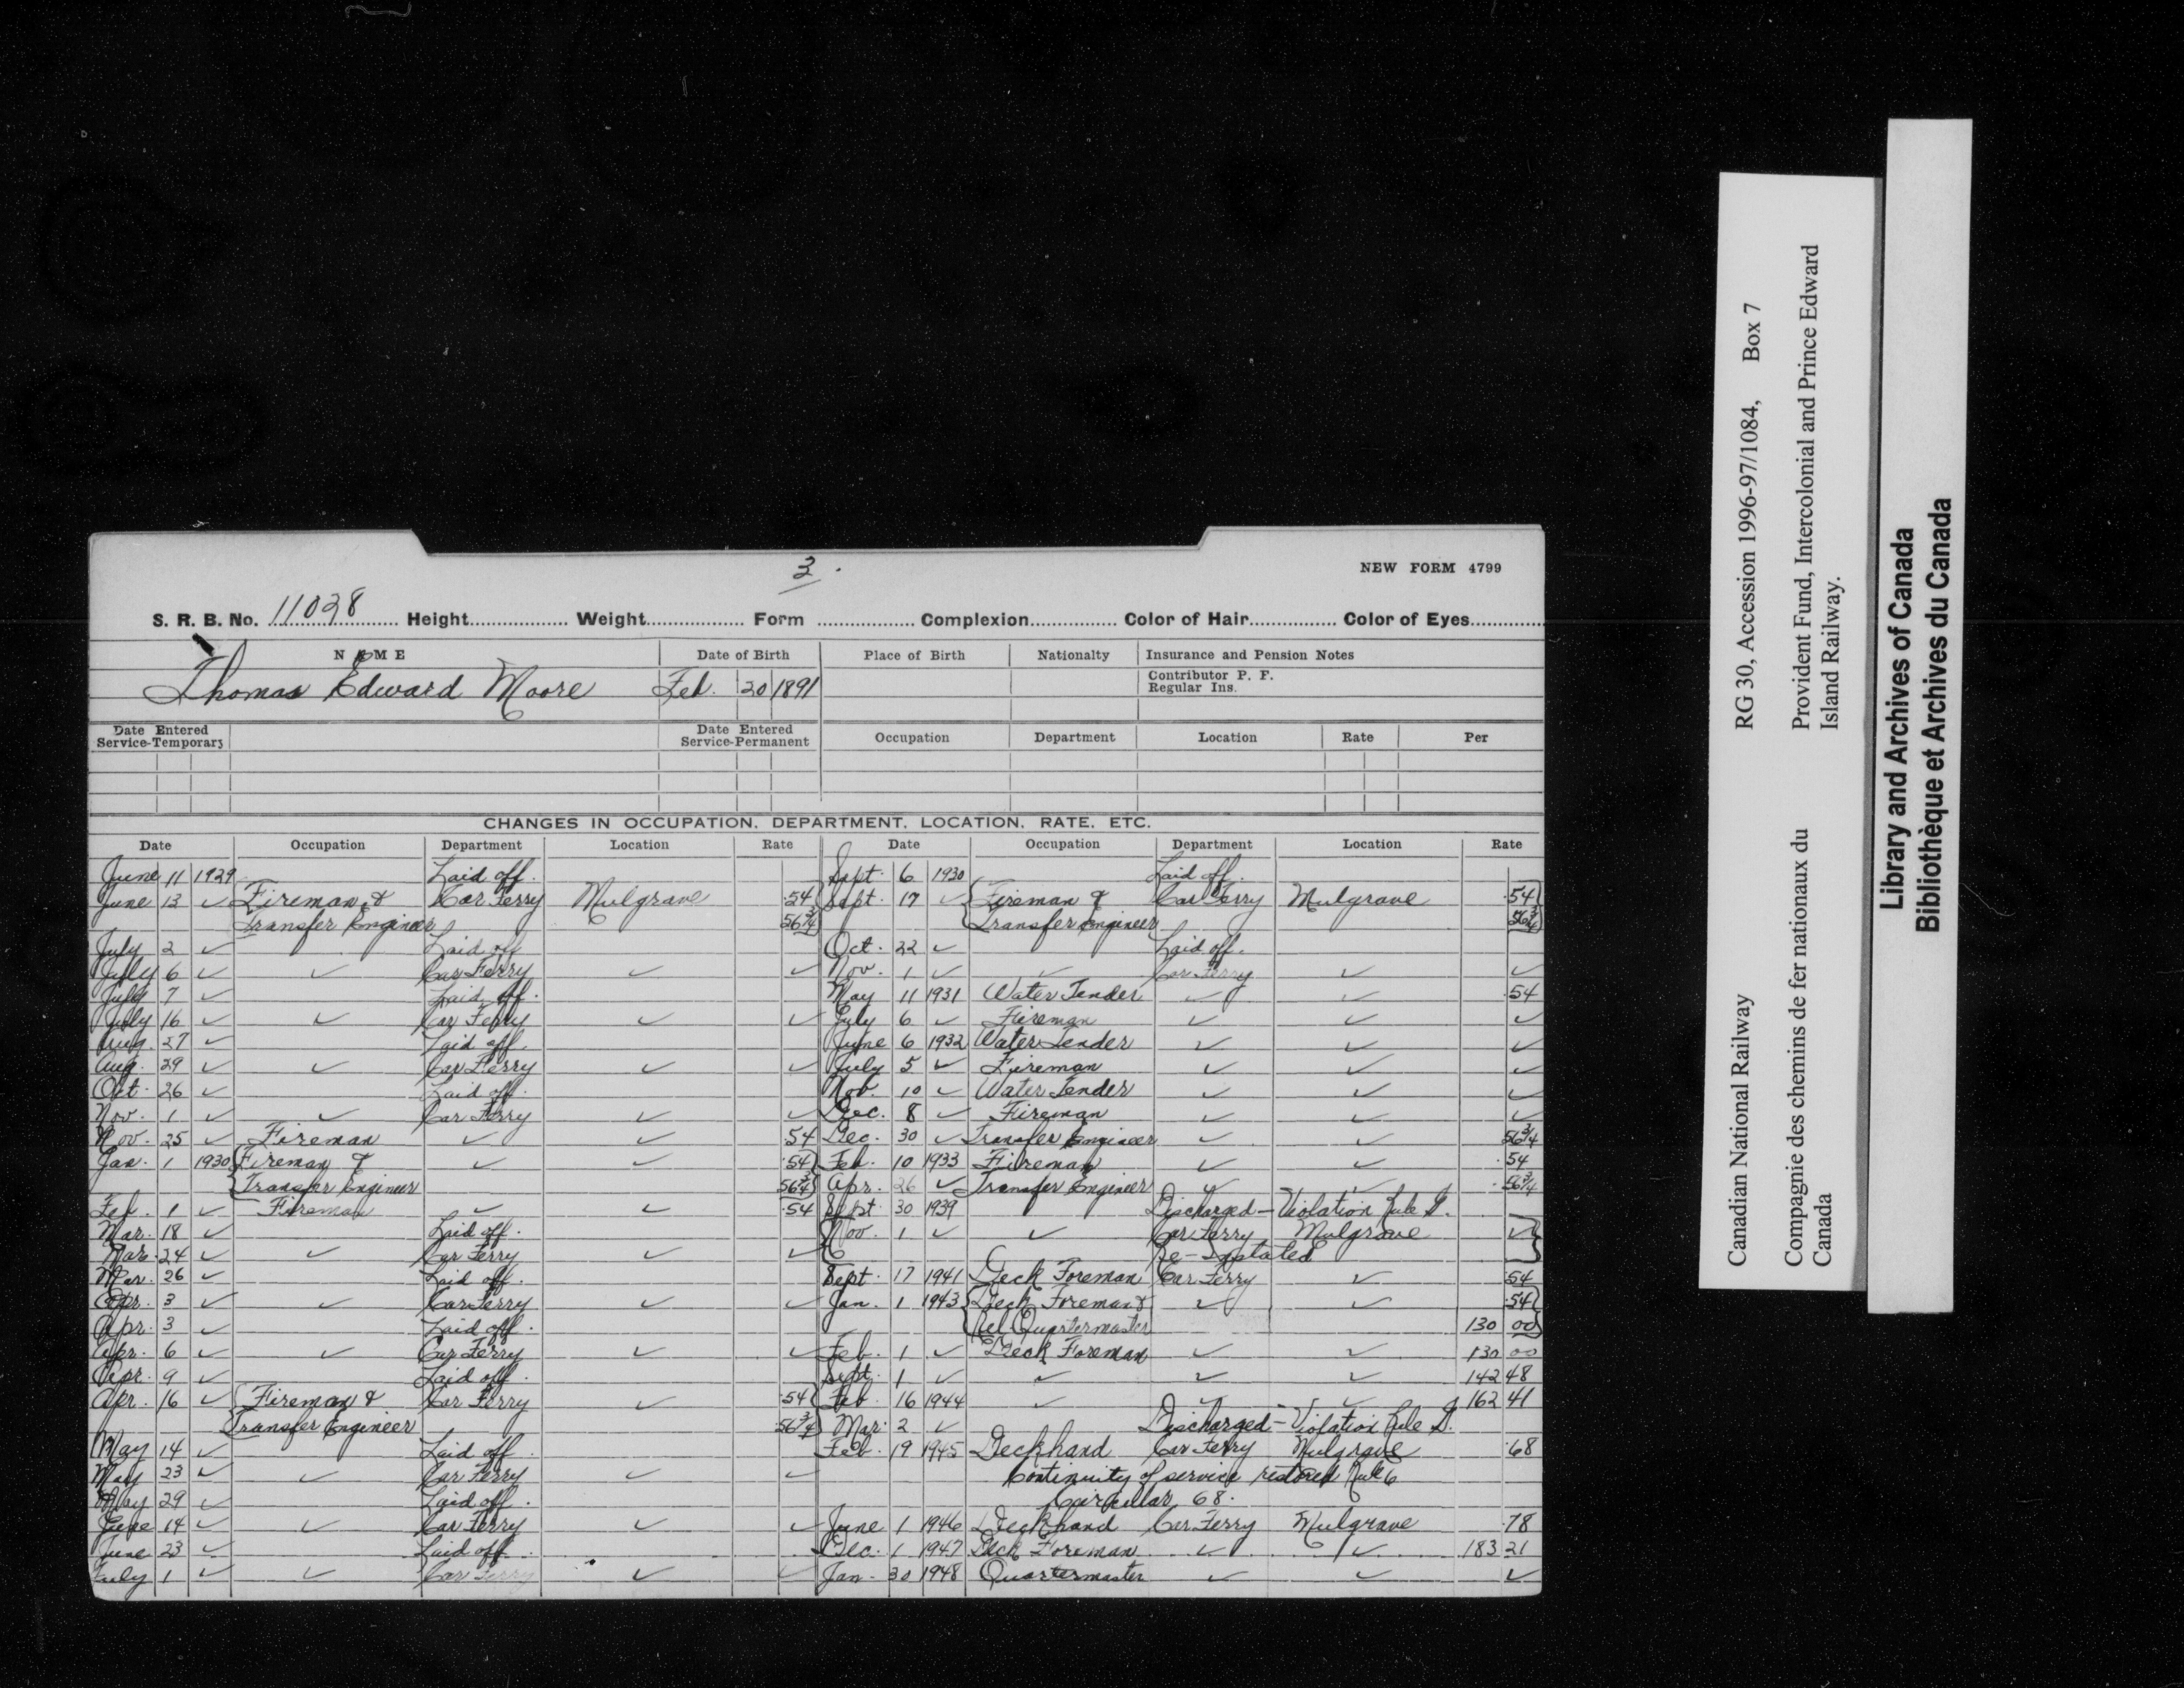 3.
NEW FORM 4799
S. R. B. No. 11028 Height Weight Form Complexion Color of Hair Color of Eyes
NAME Date of Birth Place of Birth Nationalty Insurance and Pension Notes
Contributor P. F.
Regular Ins.
Thomas Edward Moore Feb. 20 1891
Date Entered Service-Temporary Date Entered Service-Permanent Occupation Department Location Rate Per
CHANGES IN OCCUPATION, DEPARTMENT, LOCATION, RATE, ETC.
Date Occupation Department Location Rate Date Occupation Department Location Rate
June 11 1929 Laid off.
June 13 ✓ Fireman & Car Ferry Mulgrave .54
Transfer Engineer 56¾
July 2 ✓ Laid off
July 6 ✓ ✓ Car Ferry ✓ ✓
July 7 ✓ Laid off.
July 16 ✓ ✓ Car Ferry ✓ ✓
Aug. 27 ✓ Laid off.
Aug. 29 ✓ ✓ Car Ferry ✓ ✓
Oct. 26 ✓ Laid off.
Nov. 1 ✓ ✓ Car Ferry ✓ ✓
Nov. 25 ✓ Fireman ✓ ✓ .54
Jan. 1 1930 Fireman & ✓ ✓ .54
Transfer Engineer 56¾
Feb. 1 ✓ Fireman ✓ ✓ .54
Mar. 18 ✓ Laid off.
Mar. 24 ✓ ✓ Car Ferry ✓ ✓
Mar. 26 ✓ Laid off.
Apr. 3 ✓ ✓ Car Ferry ✓ ✓
Apr. 3 ✓ Laid off.
Apr. 6 ✓ ✓ Car Ferry ✓ ✓
Apr. 9 ✓ Laid off.
Apr. 16 ✓ Fireman & Car Ferry ✓ .54
Transfer Engineer 56¾
May 14 ✓ Laid off.
May 23 ✓ ✓ Car Ferry ✓ ✓
May 29 ✓ Laid off.
June 14 ✓ ✓ Car Ferry ✓ ✓
June 23 ✓ Laid off.
July 1 ✓ ✓ Car Ferry ✓ ✓
Sept. 6 1930 Laid off.
Sept. 17 ✓ Fireman & Car Ferry Mulgrave .54
Transfer Engineer 56¾
Oct. 22 ✓ Laid off.
Nov. 1 ✓ ✓ Car Ferry ✓ ✓
May 11 1931 Water Tender ✓ ✓ .54
July 6 ✓ Fireman ✓ ✓ ✓
June 6 1932 Water Tender ✓ ✓ ✓
July 5 ✓ Fireman ✓ ✓ ✓
Nov. 10 ✓ Water Tender ✓ ✓ ✓
Dec. 8 ✓ Fireman ✓ ✓ ✓
Dec. 30 ✓ Transfer Engineer ✓ ✓ 56¾
Feb. 10 1933 Fireman ✓ ✓ .54
Apr. 26 ✓ Transfer Engineer ✓ ✓ .56¾
Sept. 30 1939 Discharged - Violation Rule G.
Nov. 1 ✓ ✓ Car Ferry Mulgrave ✓
Re-Instated
Sept. 17 1941 Deck Foreman Car Ferry ✓ .54
Jan. 1 1943 Deck Foreman & ✓ ✓ .54
Rel. Quartermaster 130 00
Feb. 1 ✓ Deck Foreman ✓ ✓ 130 00
Sept. 1 ✓ ✓ ✓ ✓ 142 48
Feb 16 1944 ✓ ✓ ✓ 162 41
Mar. 2 ✓ Discharged - Violation Rule G.
Feb. 19 1945 Deckhand Car Ferry Mulgrave .68
Continuity of service restored Rule 6
Circular 68.
June 1 1946 Deckhand Car Ferry Mulgrave .78
Dec. 1 1947 Deck Foreman ✓ ✓ 183 21
Jan. 30 1948 Quartermaster ✓ ✓ ✓
Canadian National Railway RG 30, Accession 1996-97/1084, Box 7
Compagnie des chemins de fer nationaux du Canada
Provident Fund, Intercolonial and Prince Edward Island Railway.
Library and Archives of Canada
Bibliothèque et Archives du Canada